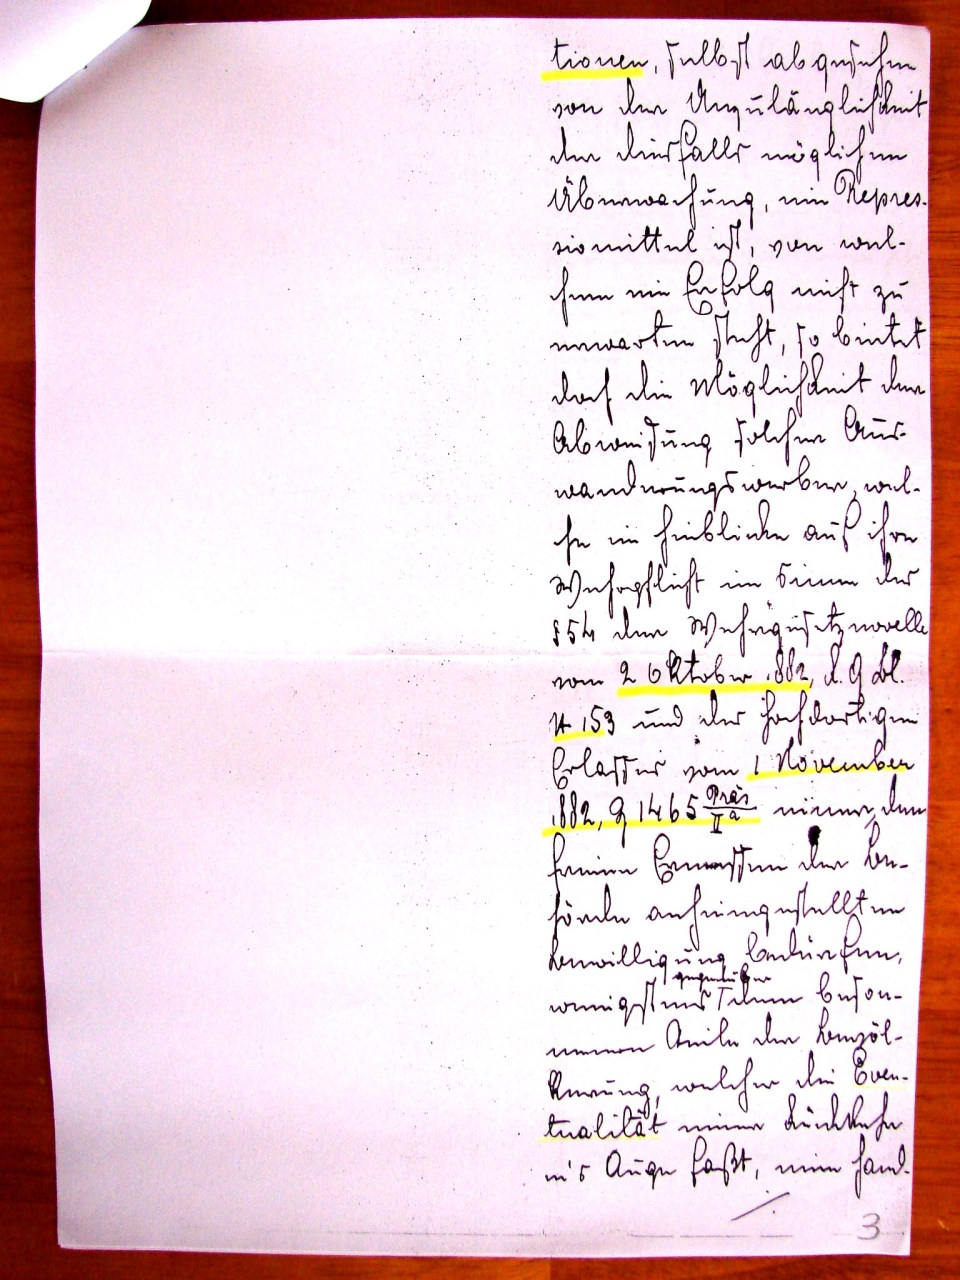 tionen, selbst abgesehen
von der Unzulänglichkeit
der diesfalls möglichen
Überwachung, ein Repres-
siomittel ist, von wel-
chem ein Erfolg nicht zu
erwarten steht, so bietet
doch die Möglichkeit der
Abweisung solcher Aus-
wanderungswerber, wel-
che im Hinblicke auf ihre
Wehrpflicht im Sinne der
§54 der Wehrgesetznovelle
vom 2 Oktober 882, R. G Bl.
N 153 und des hochdortigen
Erlasses vom 1 November
882, Z 1465 Präs/IIa einer, dem
freien Ermessen der Be-
hörde anheimgestellten
Bewilligung bedürfen,
gegenüber
wenigstens dem beson-
neneren Theile der Bevöl-
kerung, welcher die Even-
tualität einer Rückkehr
in's Auge faßt, eine Hand-
3